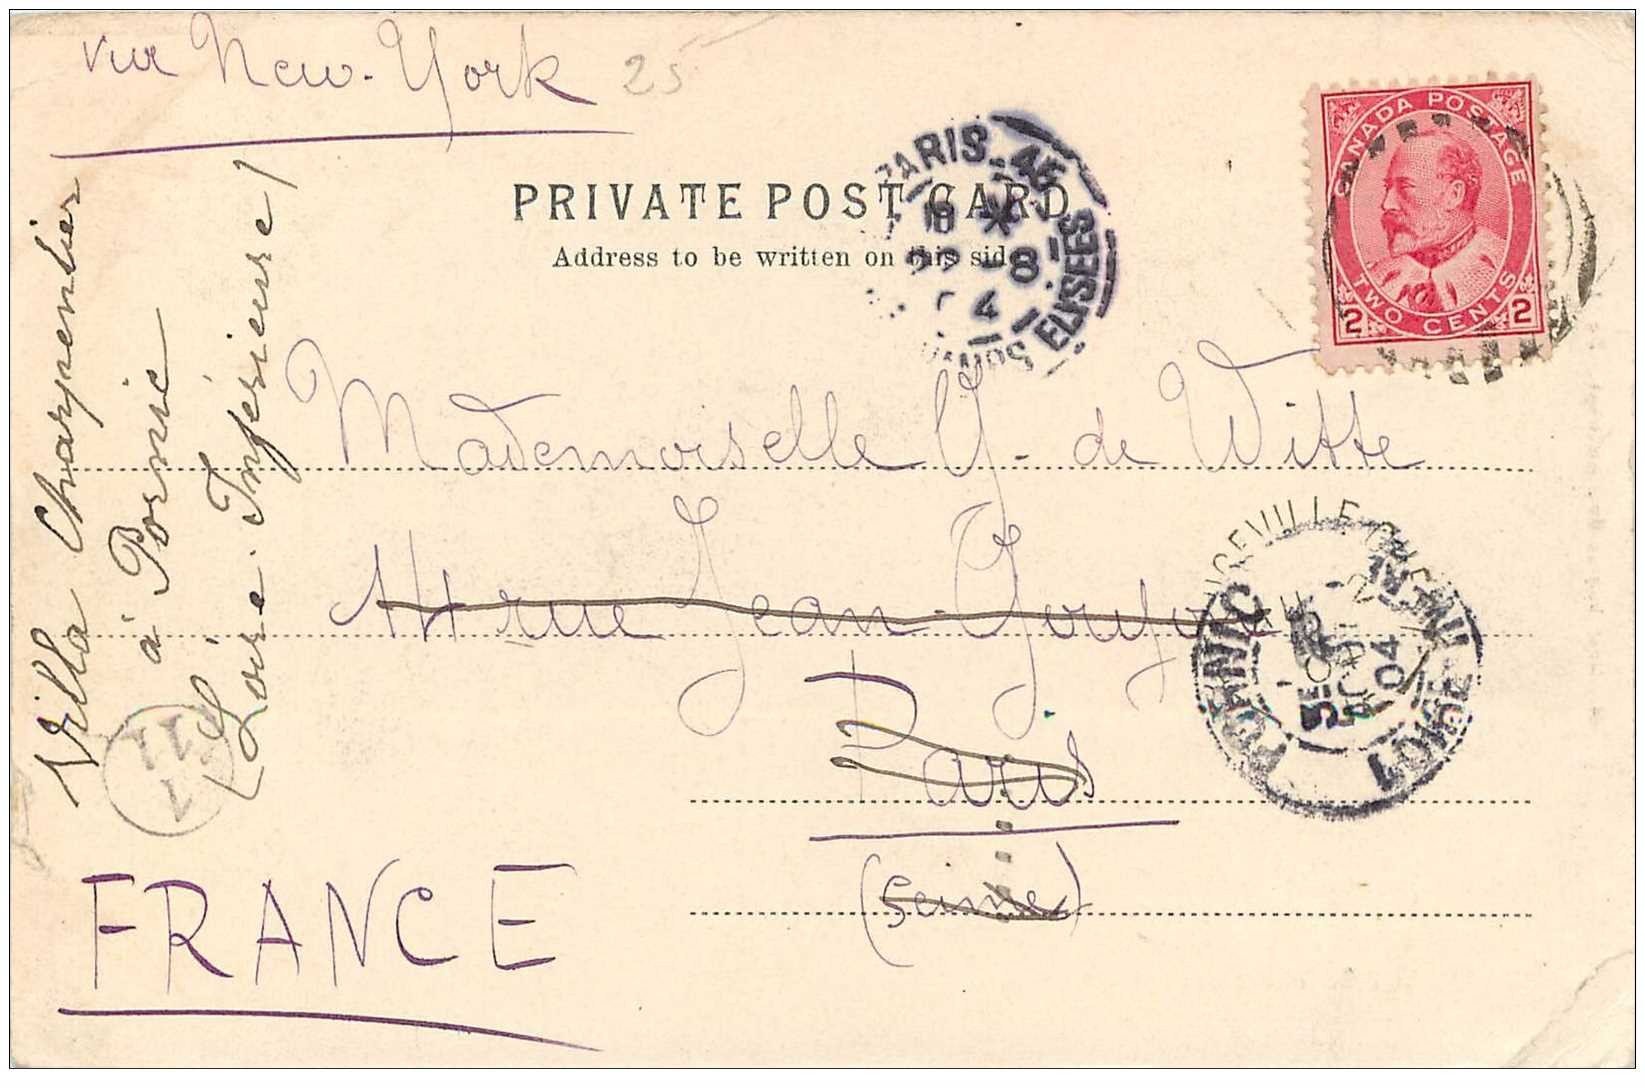 via New-York
25
PRIVATE POST CARD
Address to be written on this side
CANADA POSTAGE
2 TWO CENTS 2
PARIS 45
8
4
ELYSEES
Mademoiselle Y. de Witte
rue Jean-Goujon
Paris
(Seine)
FRANCE
Villa Charpentier
à Pornic
(Loire-Inférieure)
PORNIC
04
LOIRE INFRE
11
1